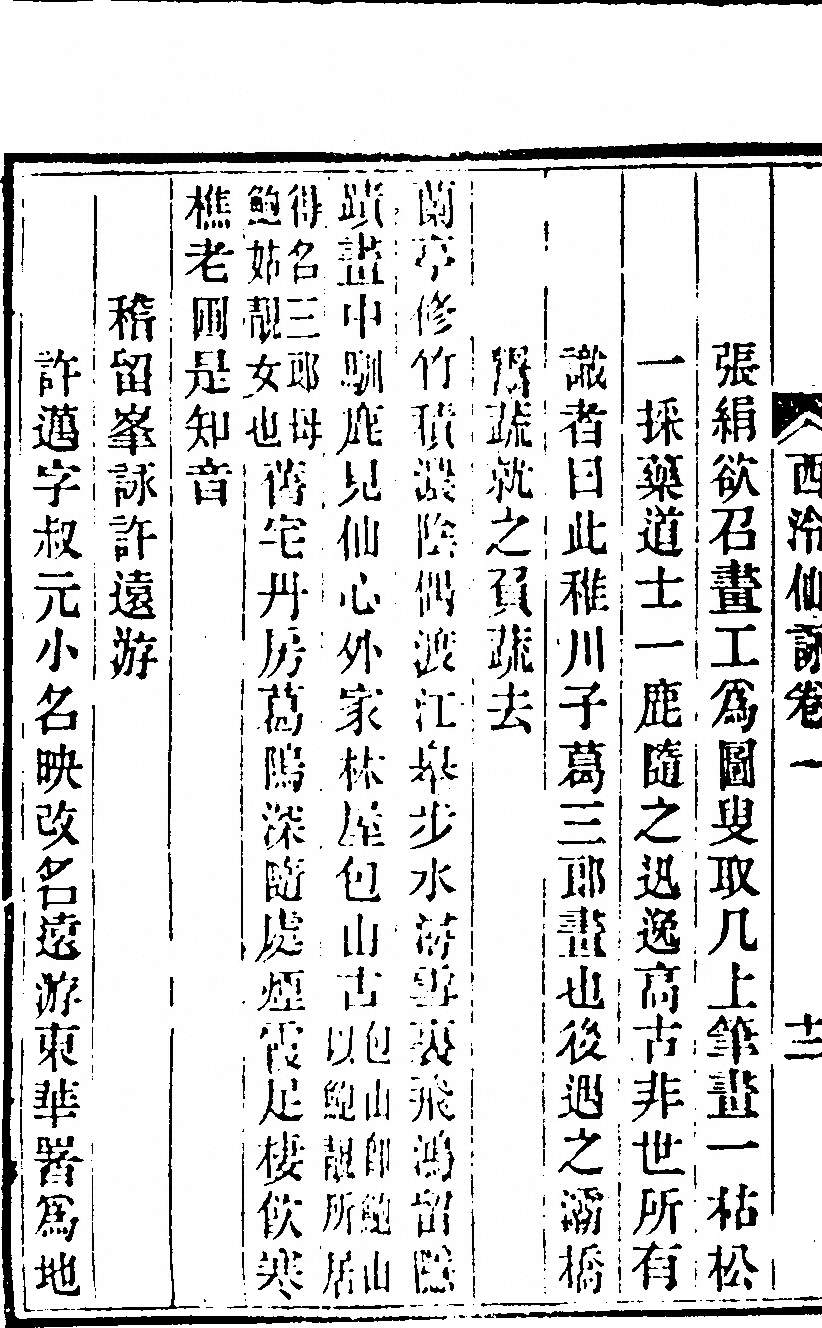 西泠仙詠卷一 十二
張絹欲召畫工爲圖叟取几上筆畫一枯松
一採藥道士一鹿隨之迅逸高古非世所有
識者曰此稚川子葛三郎畫也後遇之灞橋
疏就之負疏去
蘭亭修竹積濃陰偶渡江皋步水潯雪裏飛鴻留隱
蹟畫中馴鹿見仙心外家林屋包山古包山卽鮑山以鮑靚所居
得名三郎母鮑姑靚女也舊宅丹房葛隖深隨處煙霞足棲飲寒
樵老圃是知音
稽留峯詠許遠游
許邁字叔元小名映改名遠游東華署爲地